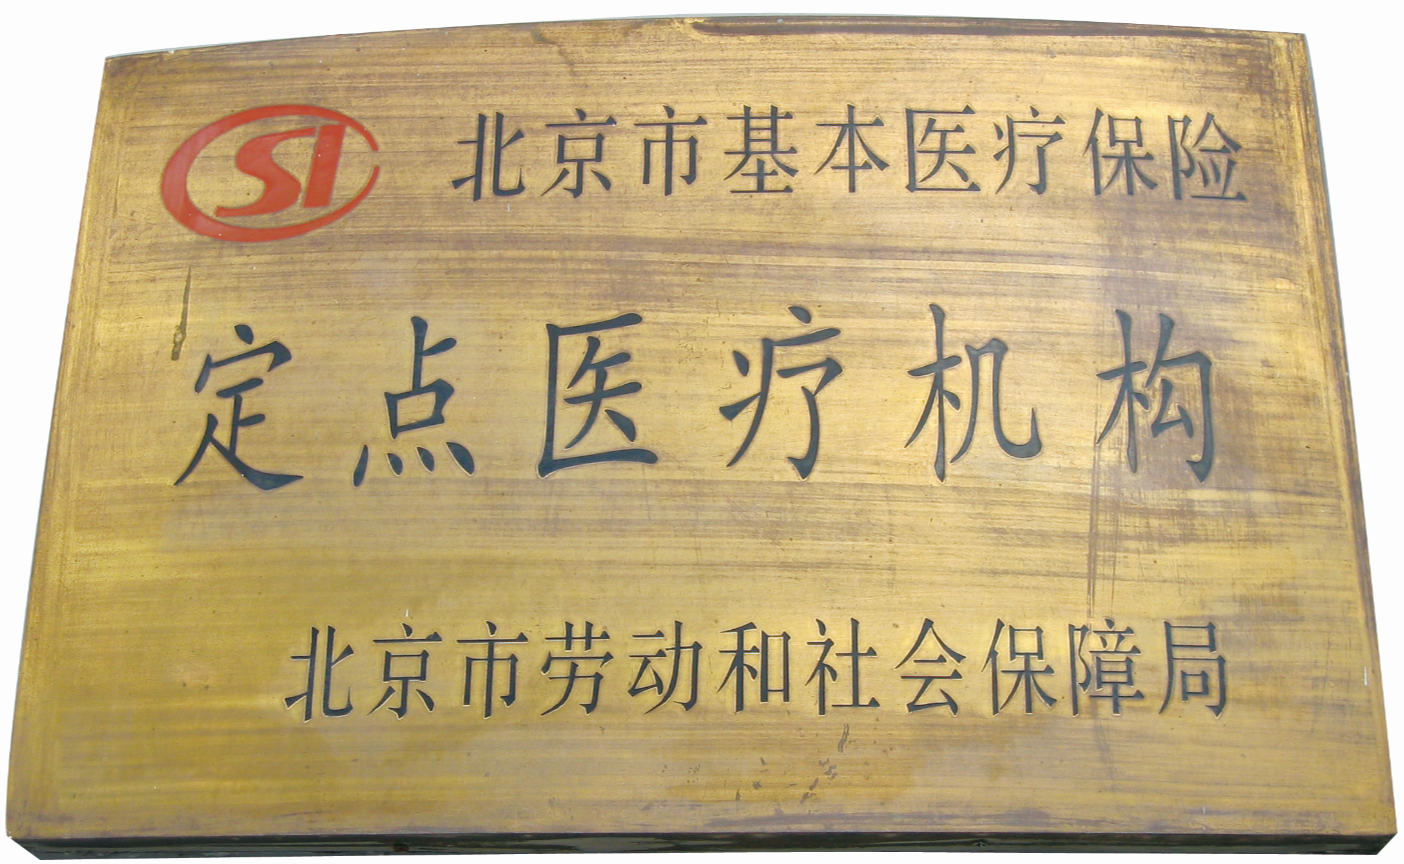 SI 北京市基本医疗保险
定点医疗机构
北京市劳动和社会保障局